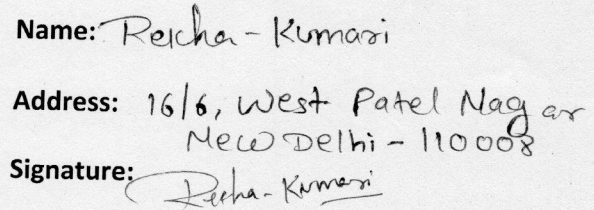 Name: Rekha - Kumari
Address: 16/6, West Patel Nagar
New Delhi - 110008
Signature: Rekha - Kumari